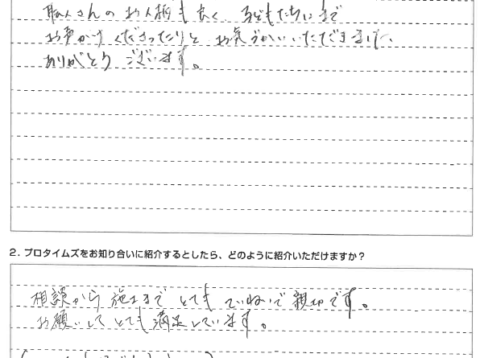 職人さんのお人柄も良く、子どもたちにまで
お声かけくださったりと お気づかいいただきまして、
ありがとうございます。
2. プロタイムズをお知り合いに紹介するとしたら、どのように紹介いただけますか？
相談から施工まで とても ていねいで 親切です。
お願いして とても 満足しています。